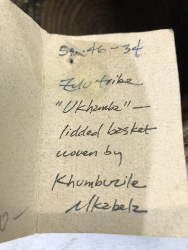 Zulu tribe
"Ukhamba" —
lidded basket
woven by
Khumbuzile
Mkabela